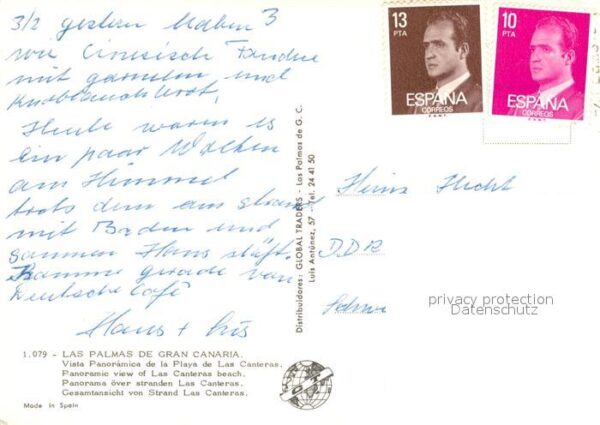 3/2 gestern haben 3
wir Cinesisch Fondue
mit garnelen und
Knoblauchbrot,
Heute waren es
ein paar Wolken
am Himmel
trots dem am strand
mit Baden und
sammen Hans
gerade von
Deutsche Café
Hans + Iris
13
PTA
ESPAÑA
CORREOS
F.N.M.T.
10
PTA
ESPAÑA
CORREOS
F.N.M.T.
Distribuidores: GLOBAL TRADERS - Las Palmas de G. C.
Luis Antúnez, 57 - Tel. 24 41 50
Heinz Hecht
DDR
privacy protection
Datenschutz
1.079 - LAS PALMAS DE GRAN CANARIA.
Vista Panorámica de la Playa de Las Canteras.
Panoramic view of Las Canteras beach.
Panorama över stranden Las Canteras.
Gesamtansicht von Strand Las Canteras.
Made in Spain